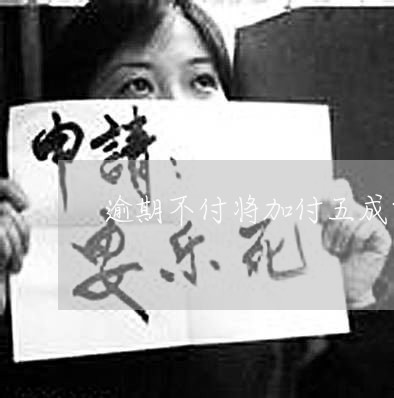 申請:
逾期不付将加付五成
乐死